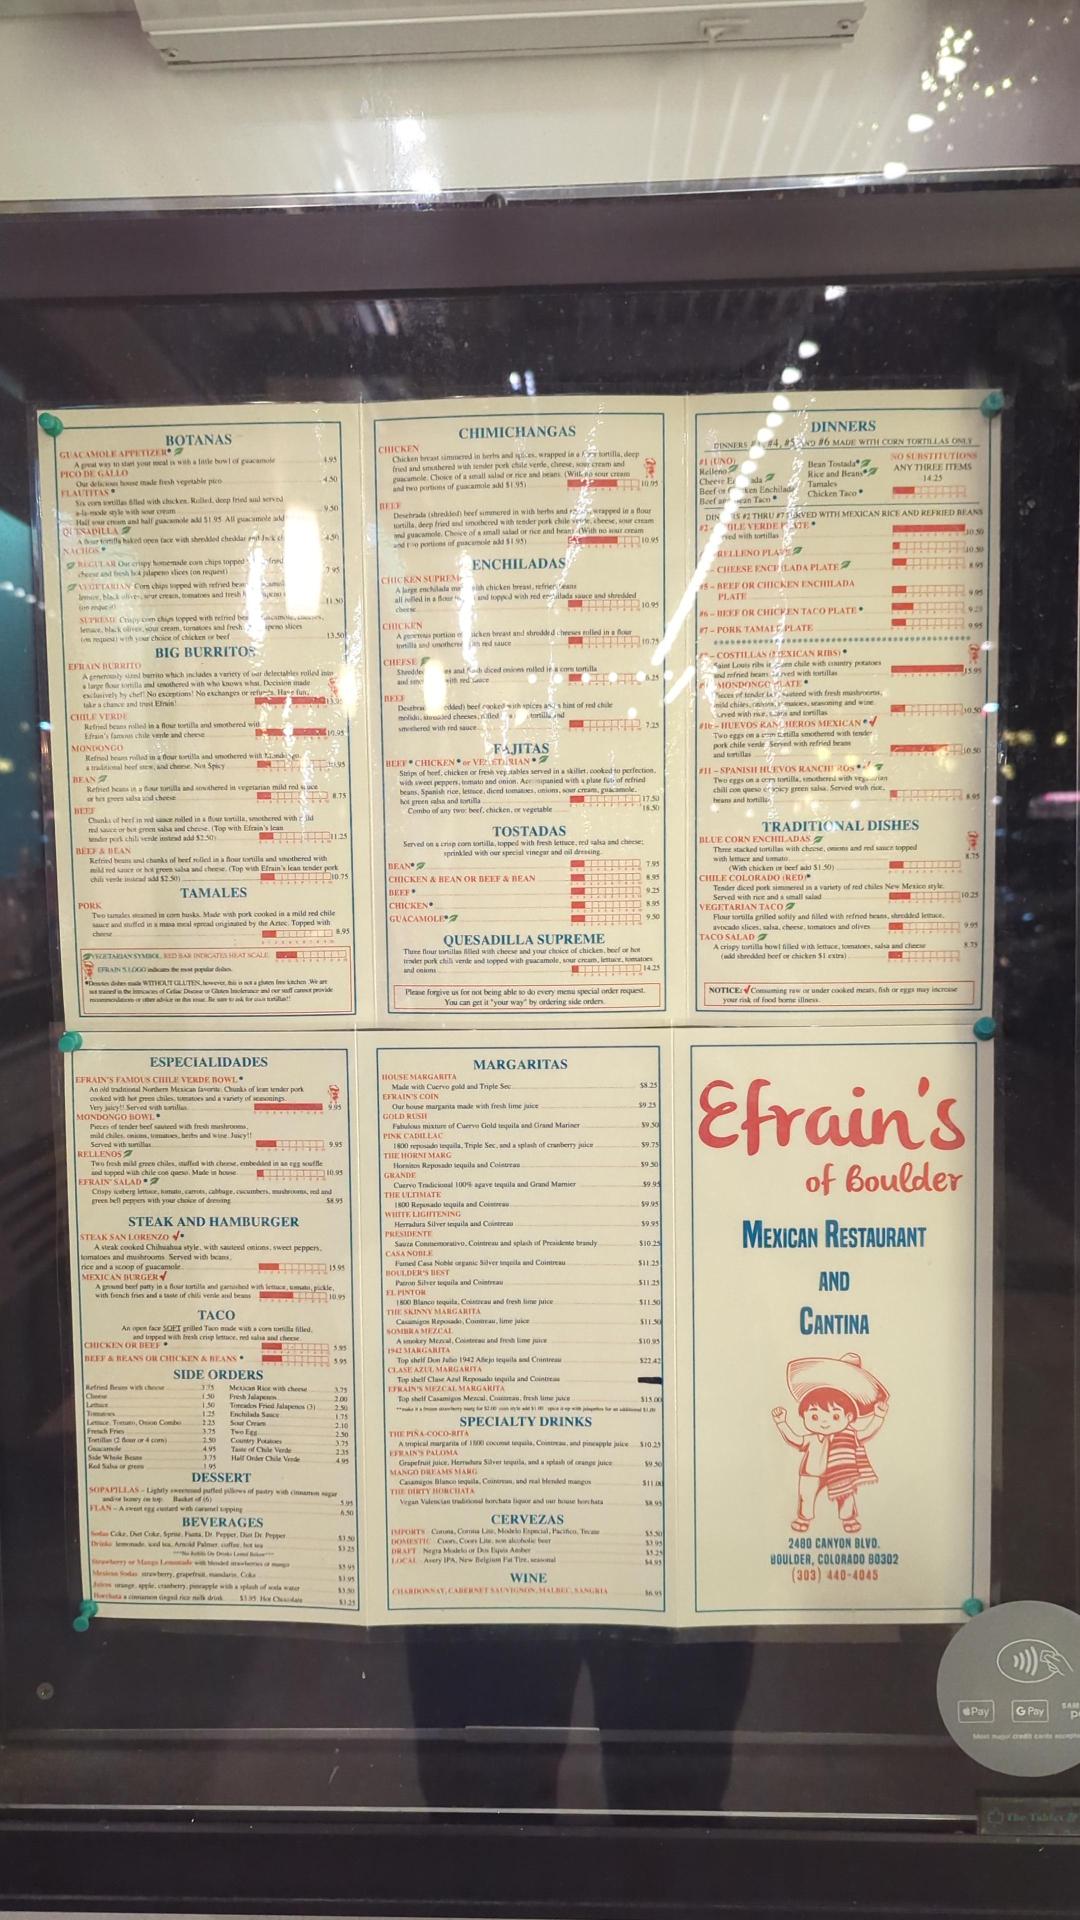 BOTANAS
GUACAMOLE APPETIZER*
A great way to start your meal is with a little bowl of guacamole 4.95
PICO DE GALLO
Our delicious house made fresh vegetable pico 4.50
FLAUTITAS *
Six corn tortillas filled with chicken. Rolled, deep fried and served
a-la-mode style with sour cream 9.50
Half sour cream and half guacamole add $1.95 All guacamole add
QUESADILLA
A flour tortilla baked open face with shredded cheddar and Jack 4.50
NACHOS *
REGULAR Our crispy homemade corn chips topped
cheese and fresh hot jalapeno slices (on request) 7.95
VEGETARIAN Corn chips topped with refried
lettuce, black olives, sour cream, tomatoes and fresh
(on request) 11.50
SUPREME Crispy corn chips topped with refried
lettuce, black olives, sour cream, tomatoes and fresh slices
(on request) with your choice of chicken or beef 13.50
BIG BURRITOS
EFRAIN BURRITO
A generously sized burrito which includes a variety of our delectables rolled into
a large flour tortilla and smothered with who knows what. Decision made
exclusively by chef! No exceptions! No exchanges or refunds. Have fun,
take a chance and trust Efrain!
CHILE VERDE
Refried beans rolled in a flour tortilla and smothered with
Efrain's famous chile verde and cheese 10.95
MONDONGO
Refried beans rolled in a flour tortilla and smothered with Mondongo,
a traditional beef stew, and cheese. Not Spicy 10.95
BEAN
Refried beans in a flour tortilla and smothered in vegetarian mild red sauce
or hot green salsa and cheese 8.75
BEEF
Chunks of beef in red sauce rolled in a flour tortilla, smothered with mild
red sauce or hot green salsa and cheese. (Top with Efrain's lean
tender pork chili verde instead add $2.50) 11.25
BEEF & BEAN
Refried beans and chunks of beef rolled in a flour tortilla and smothered with
mild red sauce or hot green salsa and cheese. (Top with Efrain's lean tender pork
chili verde instead add $2.50) 10.75
TAMALES
PORK
Two tamales steamed in corn husks. Made with pork cooked in a mild red chile
sauce and stuffed in a masa meal spread originated by the Aztec. Topped with
cheese 8.95
VEGETARIAN SYMBOL. RED BAR INDICATES HEAT SCALE
EFRAIN'S LOGO indicates the most popular dishes.
*Denotes dishes made WITHOUT GLUTEN, however, this is not a gluten free kitchen. We are
not trained in the intricacies of Celiac Disease or Gluten Intolerance and our staff cannot provide
recommendations or other advice on this issue. Be sure to ask for corn tortillas!!
CHIMICHANGAS
CHICKEN
Chicken breast simmered in herbs and spices, wrapped in a flour tortilla, deep
fried and smothered with tender pork chile verde, cheese, sour cream and
guacamole. Choice of a small salad or rice and beans. (With no sour cream
and two portions of guacamole add $1.95) 10.95
BEEF
Desebrada (shredded) beef simmered in with herbs and spices, wrapped in a flour
tortilla, deep fried and smothered with tender pork chile verde, cheese, sour cream
and guacamole. Choice of a small salad or rice and beans. (With no sour cream
and two portions of guacamole add $1.95) 10.95
ENCHILADAS
CHICKEN SUPREME
A large enchilada with chicken breast, refried beans
all rolled in a flour and topped with red enchilada sauce and shredded
cheese 10.95
CHICKEN
A generous portion of chicken breast and shredded cheeses rolled in a flour
tortilla and smothered in red sauce 10.75
CHEESE
Shredded and fresh diced onions rolled in a corn tortilla
and with red sauce 6.25
BEEF
Desebrada (shredded) beef cooked with spices and a hint of red chile
molido, shredded cheeses, rolled tortilla and
smothered with red sauce 7.25
FAJITAS
BEEF * CHICKEN * or VEGETARIAN *
Strips of beef, chicken or fresh vegetables served in a skillet, cooked to perfection,
with sweet peppers, tomato and onion. Accompanied with a plate full of refried
beans, Spanish rice, lettuce, diced tomatoes, onions, sour cream, guacamole,
hot green salsa and tortilla 17.50
Combo of any two: beef, chicken, or vegetable 18.50
TOSTADAS
Served on a crisp corn tortilla, topped with fresh lettuce, red salsa and cheese;
sprinkled with our special vinegar and oil dressing.
BEAN* 7.95
CHICKEN & BEAN OR BEEF & BEAN 8.95
BEEF* 9.25
CHICKEN* 8.95
GUACAMOLE* 9.50
QUESADILLA SUPREME
Three flour tortillas with cheese and your choice of chicken, beef or hot
tender pork chili verde and topped with guacamole, sour cream, lettuce, tomatoes
and onions 14.25
Please forgive us for not being able to do every menu special order request.
You can get it "your way" by ordering side orders.
DINNERS
DINNERS #4, #5 AND #6 MADE WITH CORN TORTILLAS ONLY
#1 (UNO)
Relleno
Cheese Enchilada
Beef or Chicken Enchilada
Beef and Bean Taco *
Bean Tostada*
Rice and Beans*
Tamales
Chicken Taco *
NO SUBSTITUTIONS
ANY THREE ITEMS
14.25
DINNERS #2 THRU #7 SERVED WITH MEXICAN RICE AND REFRIED BEANS
CHILE VERDE PLATE *
Served with tortillas 10.50
RELLENO PLATE 10.50
CHEESE ENCHILADA PLATE 8.95
#5 - BEEF OR CHICKEN ENCHILADA
PLATE 9.95
#6 - BEEF OR CHICKEN TACO PLATE * 9.25
#7 - PORK TAMALE PLATE 9.95
COSTILLAS (MEXICAN RIBS) *
Saint Louis ribs in green chile with country potatoes
and refried beans. Served with tortillas 15.95
MONDONGO PLATE *
Pieces of tender beef sauteed with fresh mushrooms,
mild chiles, onions, tomatoes, seasoning and wine.
Served with rice, beans and tortillas 10.50
#10 - HUEVOS RANCHEROS MEXICAN *
Two eggs on a corn tortilla smothered with tender
pork chile verde. Served with refried beans
and tortillas 10.50
#11 - SPANISH HUEVOS RANCHEROS *
Two eggs on a corn tortilla, smothered with vegetarian
chili con queso or spicy green salsa. Served with rice,
beans and tortillas 8.95
TRADITIONAL DISHES
BLUE CORN ENCHILADAS
Three stacked tortillas with cheese, onions and red sauce topped
with lettuce and tomato 8.75
(With chicken or beef add $1.50)
CHILE COLORADO (RED)*
Tender diced pork simmered in a variety of red chiles New Mexico style.
Served with rice and a small salad 10.25
VEGETARIAN TACO
Flour tortilla grilled softly and filled with refried beans, shredded lettuce,
avocado slices, salsa, cheese, tomatoes and olives 9.95
TACO SALAD
A crispy tortilla bowl filled with lettuce, tomatoes, salsa and cheese 8.75
(add shredded beef or chicken $1 extra)
NOTICE: Consuming raw or under cooked meats, fish or eggs may increase
your risk of food borne illness.
ESPECIALIDADES
EFRAIN'S FAMOUS CHILE VERDE BOWL *
An old traditional Northern Mexican favorite. Chunks of lean tender pork
cooked with hot green chiles, tomatoes and a variety of seasonings.
Very juicy!! Served with tortillas 9.95
MONDONGO BOWL *
Pieces of tender beef sauteed with fresh mushrooms,
mild chiles, onions, tomatoes, herbs and wine. Juicy!!
Served with tortillas 9.95
RELLENOS
Two fresh mild green chiles, stuffed with cheese, embedded in an egg souffle
and topped with chile con queso. Made in house 10.95
EFRAIN' SALAD *
Crispy iceberg lettuce, tomato, carrots, cabbage, cucumbers, mushrooms, red and
green bell peppers with your choice of dressing $8.95
STEAK AND HAMBURGER
STEAK SAN LORENZO *
A steak cooked Chihuahua style, with sauteed onions, sweet peppers,
tomatoes and mushrooms. Served with beans,
rice and a scoop of guacamole 15.95
MEXICAN BURGER
A ground beef patty in a flour tortilla and garnished with lettuce, tomato, pickle,
with french fries and a taste of chili verde and beans 10.95
TACO
An open face SOFT grilled Taco made with a corn tortilla filled,
and topped with fresh crisp lettuce, red salsa and cheese.
CHICKEN OR BEEF * 5.95
BEEF & BEANS OR CHICKEN & BEANS * 5.95
SIDE ORDERS
Refried Beans with cheese 3.75
Cheese 1.50
Lettuce 1.50
Tomatoes 1.25
Lettuce, Tomato, Onion Combo 2.25
French Fries 3.75
Tortillas (2 flour or 4 corn) 2.50
Guacamole 4.95
Side Whole Beans 3.75
Red Salsa or green 1.95
Mexican Rice with cheese 3.75
Fresh Jalapenos 2.00
Toreados Fried Jalapenos (3) 2.50
Enchilada Sauce 1.75
Sour Cream 2.10
Two Egg 2.50
Country Potatoes 3.75
Taste of Chile Verde 2.35
Half Order Chile Verde 4.95
DESSERT
SOPAPILLAS - Lightly sweetened puffed pillows of pastry with cinnamon sugar
and/or honey on top. Basket of (6) 5.95
FLAN - A sweet egg custard with caramel topping 6.50
BEVERAGES
Sodas Coke, Diet Coke, Sprite, Fanta, Dr. Pepper, Diet Dr. Pepper $3.50
Drinks lemonade, iced tea, Arnold Palmer, coffee, hot tea $3.25
***No Refills On Drinks Listed Below***
Strawberry or Mango Lemonade with blended strawberries or mango $5.95
Mexican Sodas strawberry, grapefruit, mandarin, Coke $3.95
Juices orange, apple, cranberry, pineapple with a splash of soda water $3.50
Horchata a cinnamon tinged rice milk drink $3.95 Hot Chocolate $3.25
MARGARITAS
HOUSE MARGARITA
Made with Cuervo gold and Triple Sec $8.25
EFRAIN'S COIN
Our house margarita made with fresh lime juice $9.25
GOLD RUSH
Fabulous mixture of Cuervo Gold tequila and Grand Mariner $9.50
PINK CADILLAC
1800 reposado tequila, Triple Sec, and a splash of cranberry juice $9.75
THE HORNI MARG
Hornitos Reposado tequila and Cointreau $9.50
GRANDE
Cuervo Tradicional 100% agave tequila and Grand Marnier $9.95
THE ULTIMATE
1800 Reposado tequila and Cointreau $9.95
WHITE LIGHTENING
Herradura Silver tequila and Cointreau $9.95
PRESIDENTE
Sauza Conmemorativo, Cointreau and splash of Presidente brandy $10.25
CASA NOBLE
Famed Casa Noble organic tequila and Cointreau $11.25
BOULDER'S BEST
Patron Silver tequila and Cointreau $11.25
EL PINTOR
1800 Blanco tequila, Cointreau and fresh lime juice $11.50
THE SKINNY MARGARITA
Casamigos Reposado, Cointreau, lime juice $11.50
SOMBRA MEZCAL
A smokey Mezcal, Cointreau and fresh lime juice $10.95
1942 MARGARITA
Top shelf Don Julio 1942 Añejo tequila and Cointreau $22.42
CLASE AZUL MARGARITA
Top shelf Clase Azul Reposado tequila and Cointreau
EFRAIN'S MEZCAL MARGARITA
Top shelf Casamigos Mezcal, Cointreau, fresh lime juice $15.00
**make it a frozen strawberry marg for $2.00 coin style add $1.00 spice it up with jalapeños for an additional $1.00
SPECIALTY DRINKS
THE PIÑA-COCO-RITA
A tropical margarita of 1800 coconut tequila, Cointreau, and pineapple juice $10.25
EFRAIN'S PALOMA
Grapefruit juice, Herradura Silver tequila, and a splash of orange juice $9.50
MANGO DREAMS MARG
Casamigos Blanco tequila, Cointreau, and real blended mangos $11.00
THE DIRTY HORCHATA
Vegan Valencian traditional horchata liquor and our house horchata $8.95
CERVEZAS
IMPORTS Corona, Corona Lite, Modelo Especial, Pacifico, Tecate $5.50
DOMESTIC Coors, Coors Lite, non alcoholic beer $3.95
DRAFT Negra Modelo or Dos Equis Amber $5.25
LOCAL Avery IPA, New Belgium Fat Tire, seasonal $4.95
WINE
CHARDONNAY, CABERNET SAUVIGNON, MALBEC, SANGRIA $6.95
Efrain's
of Boulder
MEXICAN RESTAURANT
AND
CANTINA
2480 CANYON BLVD.
BOULDER, COLORADO 80302
(303) 440-4045
Pay
G Pay
Most major credit cards
The Tables